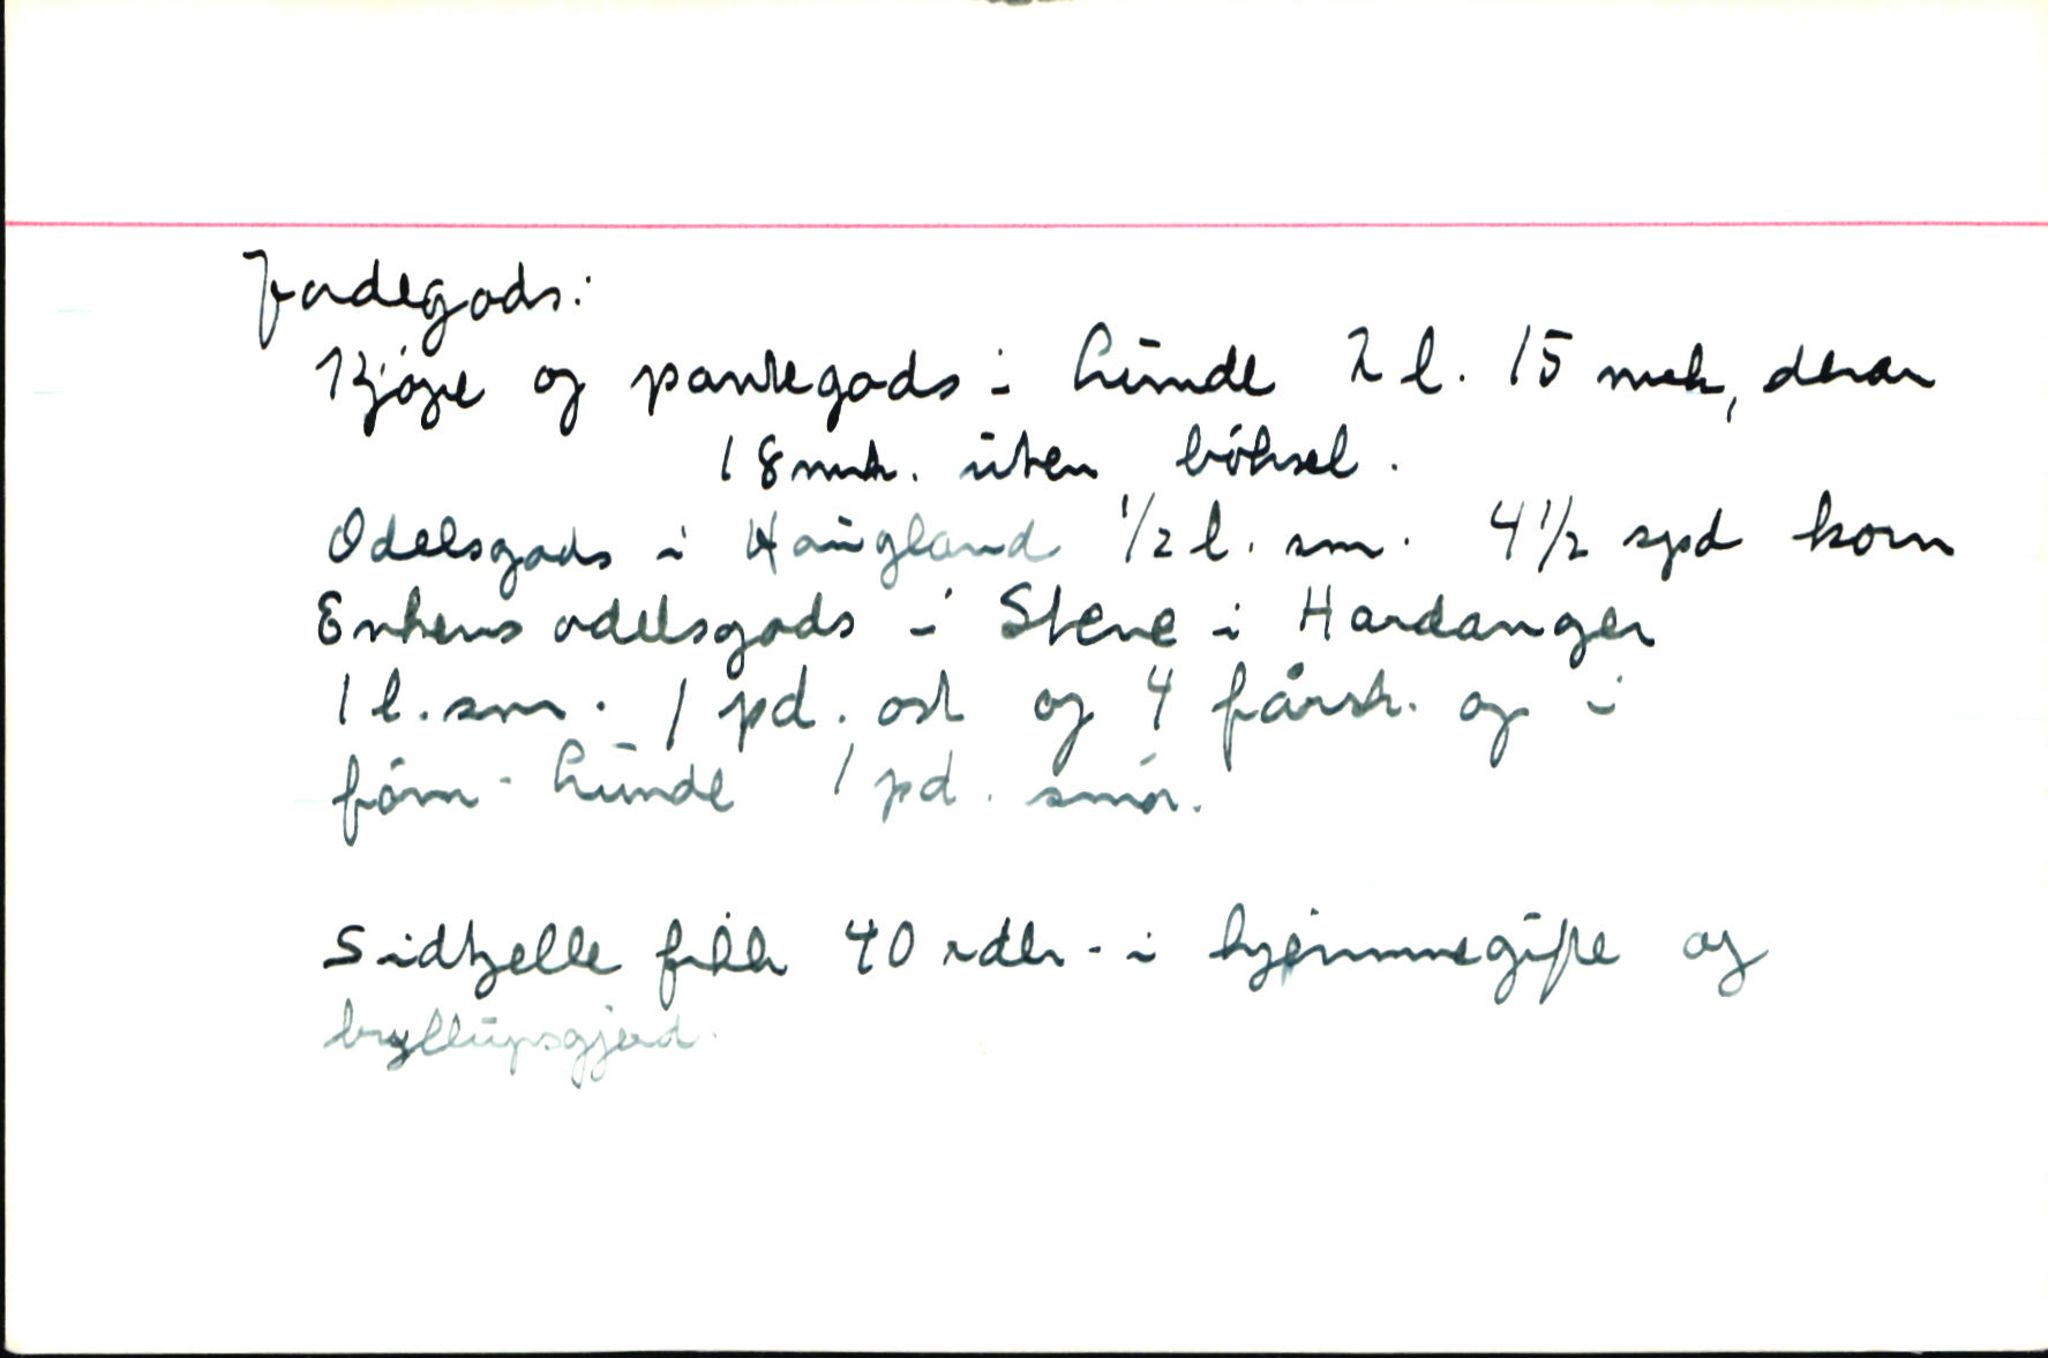 Jordegods:
Kjöpe og pantegods i Lunde 2 l. 15 mrk, derav
18 mrk. uten böksel.
Odelsgods i Haugland 1/2 l. sm. 4 1/2 spd korn
Enkens odelsgods i Stene i Hardanger
1 l. sm. 1 pd. ost og 4 fårsk. og i
förn. Lunde 1 pd. smör.
Sidtzelle fikk 40 rdlr. i hjemmegifte og
bryllupsgjerd.